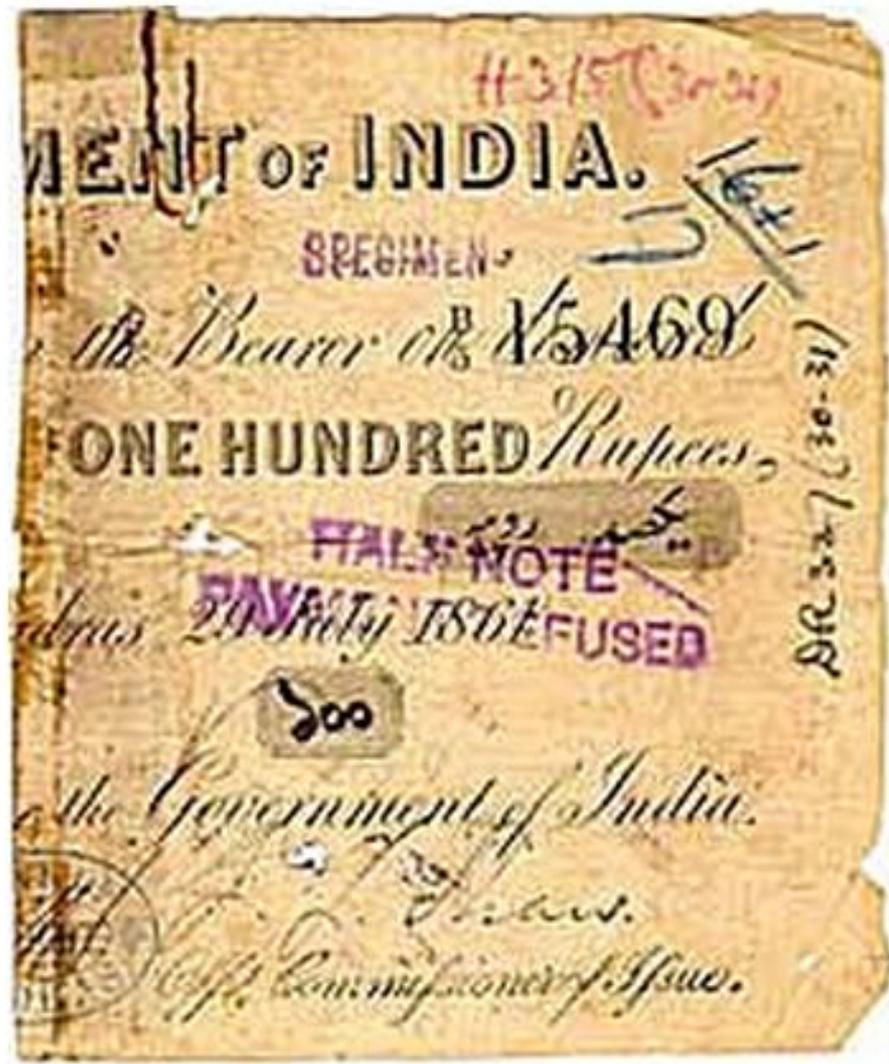 H315 (30-31)
MENT OF INDIA.
SPECIMEN
the Bearer on
B 15469
ONE HUNDRED Rupees,
یکصد روپیہ
HALF NOTE
PAYMENT REFUSED
dras 29 July 1861
১০০
the Government of India.
Offg. Commissioner of Issue.
DR 327 (30-31)